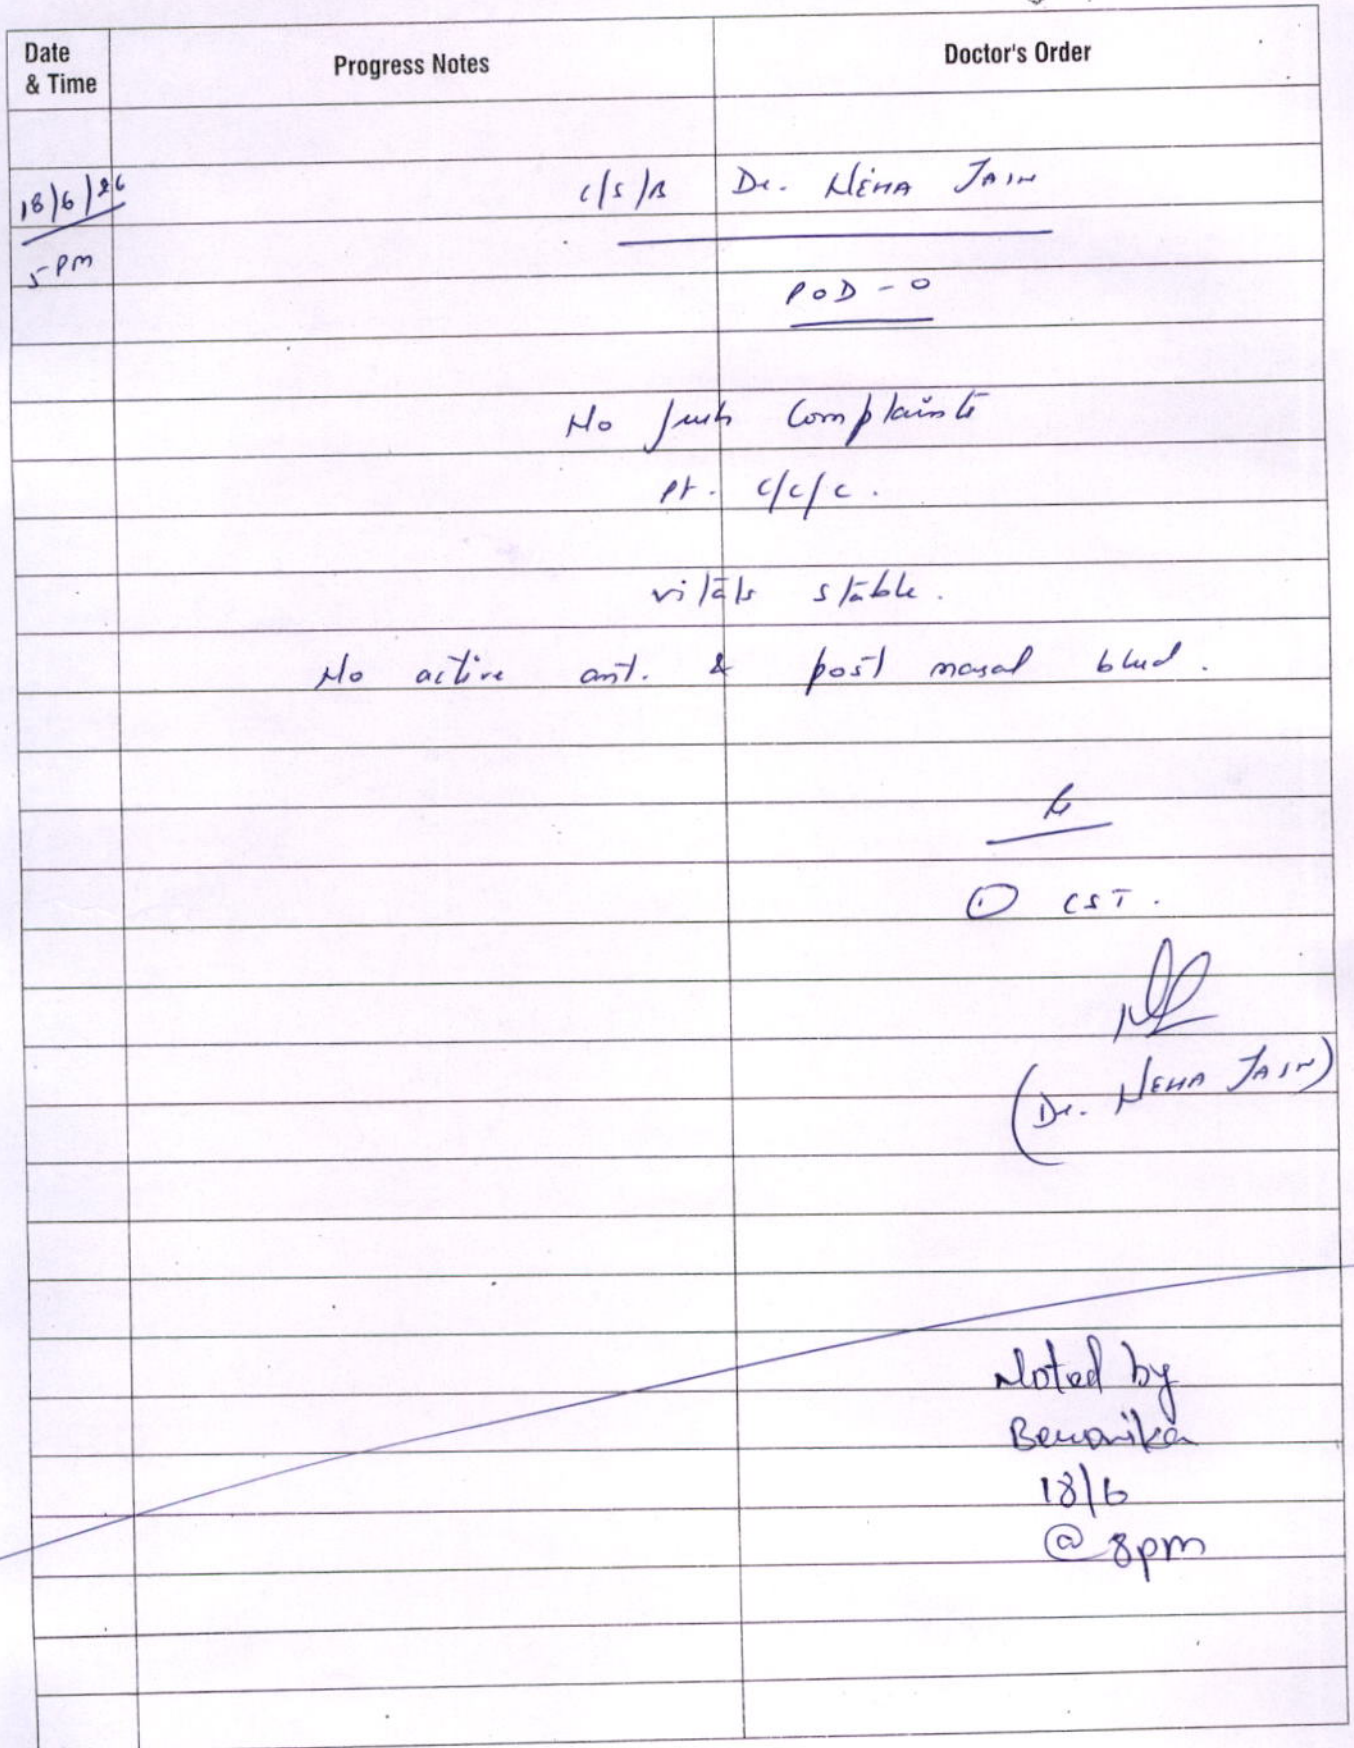 Date & Time
Progress Notes
Doctor's Order
18/6/26
5 PM
C/S/B Dr. NEHA JAIN
POD - 0
No fresh Complaints
pt. c/c/c.
vitals stable.
No active ant. & post nasal bleed.
① CST.
(Dr. NEHA JAIN)
Noted by
18/6
@ 8pm